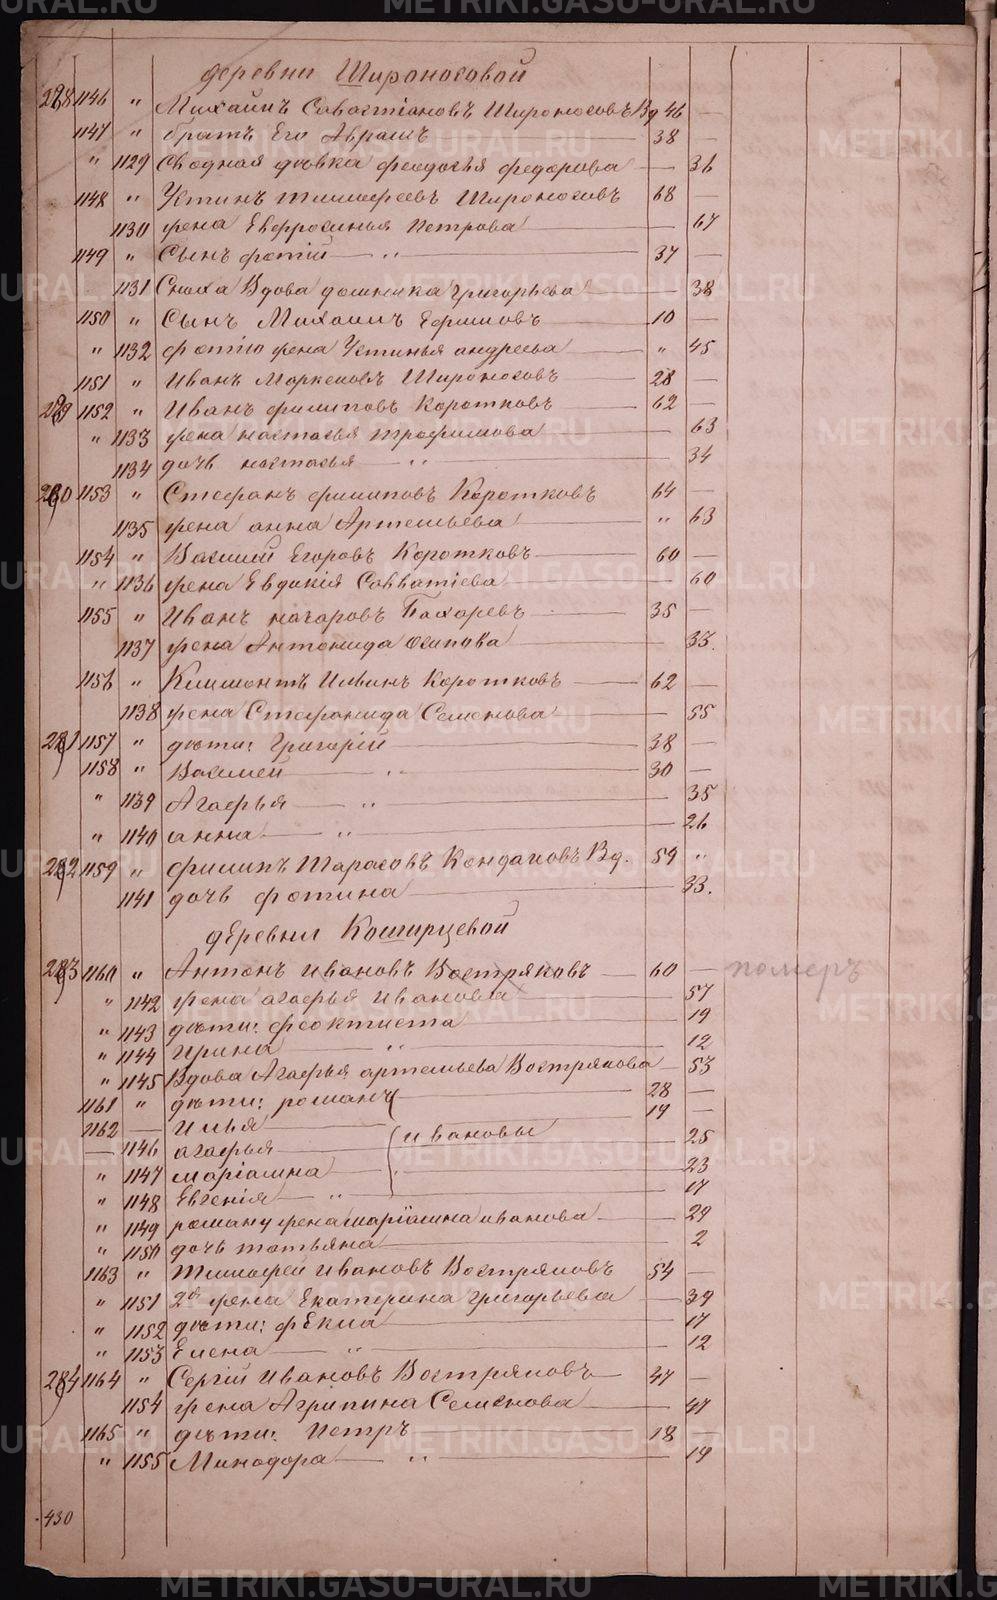 деревни Широносовой
278 1146 " Михаилъ Савостіановъ Широносовъ Вд 46 —
1147 " братъ Его Аврамъ 38 —
" 1129 Сводная дѣвка феодосья федорова — 36
1148 " Устинъ тимофеевъ Широносовъ 68 —
1130 жена Евфросинья Петрова — 67
1149 " Сынъ фотій — " — 37 —
1131 Сноха Вдова домника григорьева — 38
1150 " Сынъ Михаилъ Ефимовъ 10 —
" 1132 фотію жена Устинья андреева " 45
1151 " Иванъ Маркеловъ Широносовъ 28 —
279 1152 " Иванъ филиповъ Коротковъ 62 —
" 1133 жена настасья трофимова — 63
1134 дочь настасья — " — 34
280 1153 " Стефанъ филиповъ Коротковъ 64 —
1135 жена анна Артемьева " 63
1154 " Василій Егоровъ Коротковъ 60 —
" 1136 жена Евдокія Савватіева — 60
1155 " Иванъ назаровъ Пахоревъ 35 —
1137 жена Антонида Осипова — 33.
1156 " Климонтъ Ильинъ Коротковъ 62 —
1138 жена Стефанида Семенова — 55
281 1157 " дѣти: Григорій 38 —
1158 " Василей — " — 30 —
" 1139 Агафья — " — 35
" 1140 анна — " — 26
282 1159 " филипъ Тарасовъ Кондаковъ Вд. 59 "
1141 дочь фотина — 33.
деревни Коширцевой
283 1160 " Антонъ ивановъ Востряковъ 60 — померъ
" 1142 жена агафья Иванова — 57
" 1143 дѣти: феоктиста — 19
" 1144 ирина — " — 12
" 1145 Вдова Агафья артемьева Вострякова — 53
1161 " дѣти: романъ 28 —
1162 — Илья 19 —
ивановы
— 1146 агафья — 25
" 1147 маріамна — 23
" 1148 Евгенія — " — 17
" 1149 роману жена маріамна иванова — 29
" 1150 дочь татьяна — 2
1163 " Тимофей Ивановъ Востряковъ 54 —
" 1151 2я жена Екатерина Григорьева — 39
" 1152 дѣти: фЕкла — 17
" 1153 Елена — " — 12
284 1164 " Сергій Ивановъ Востряковъ 47 —
1154 жена Агрипина Семенова — 47
1165 " дѣти: Петръ 18
" 1155 Минодора — " — 19
430
METRIKI.GASO-URAL.RU